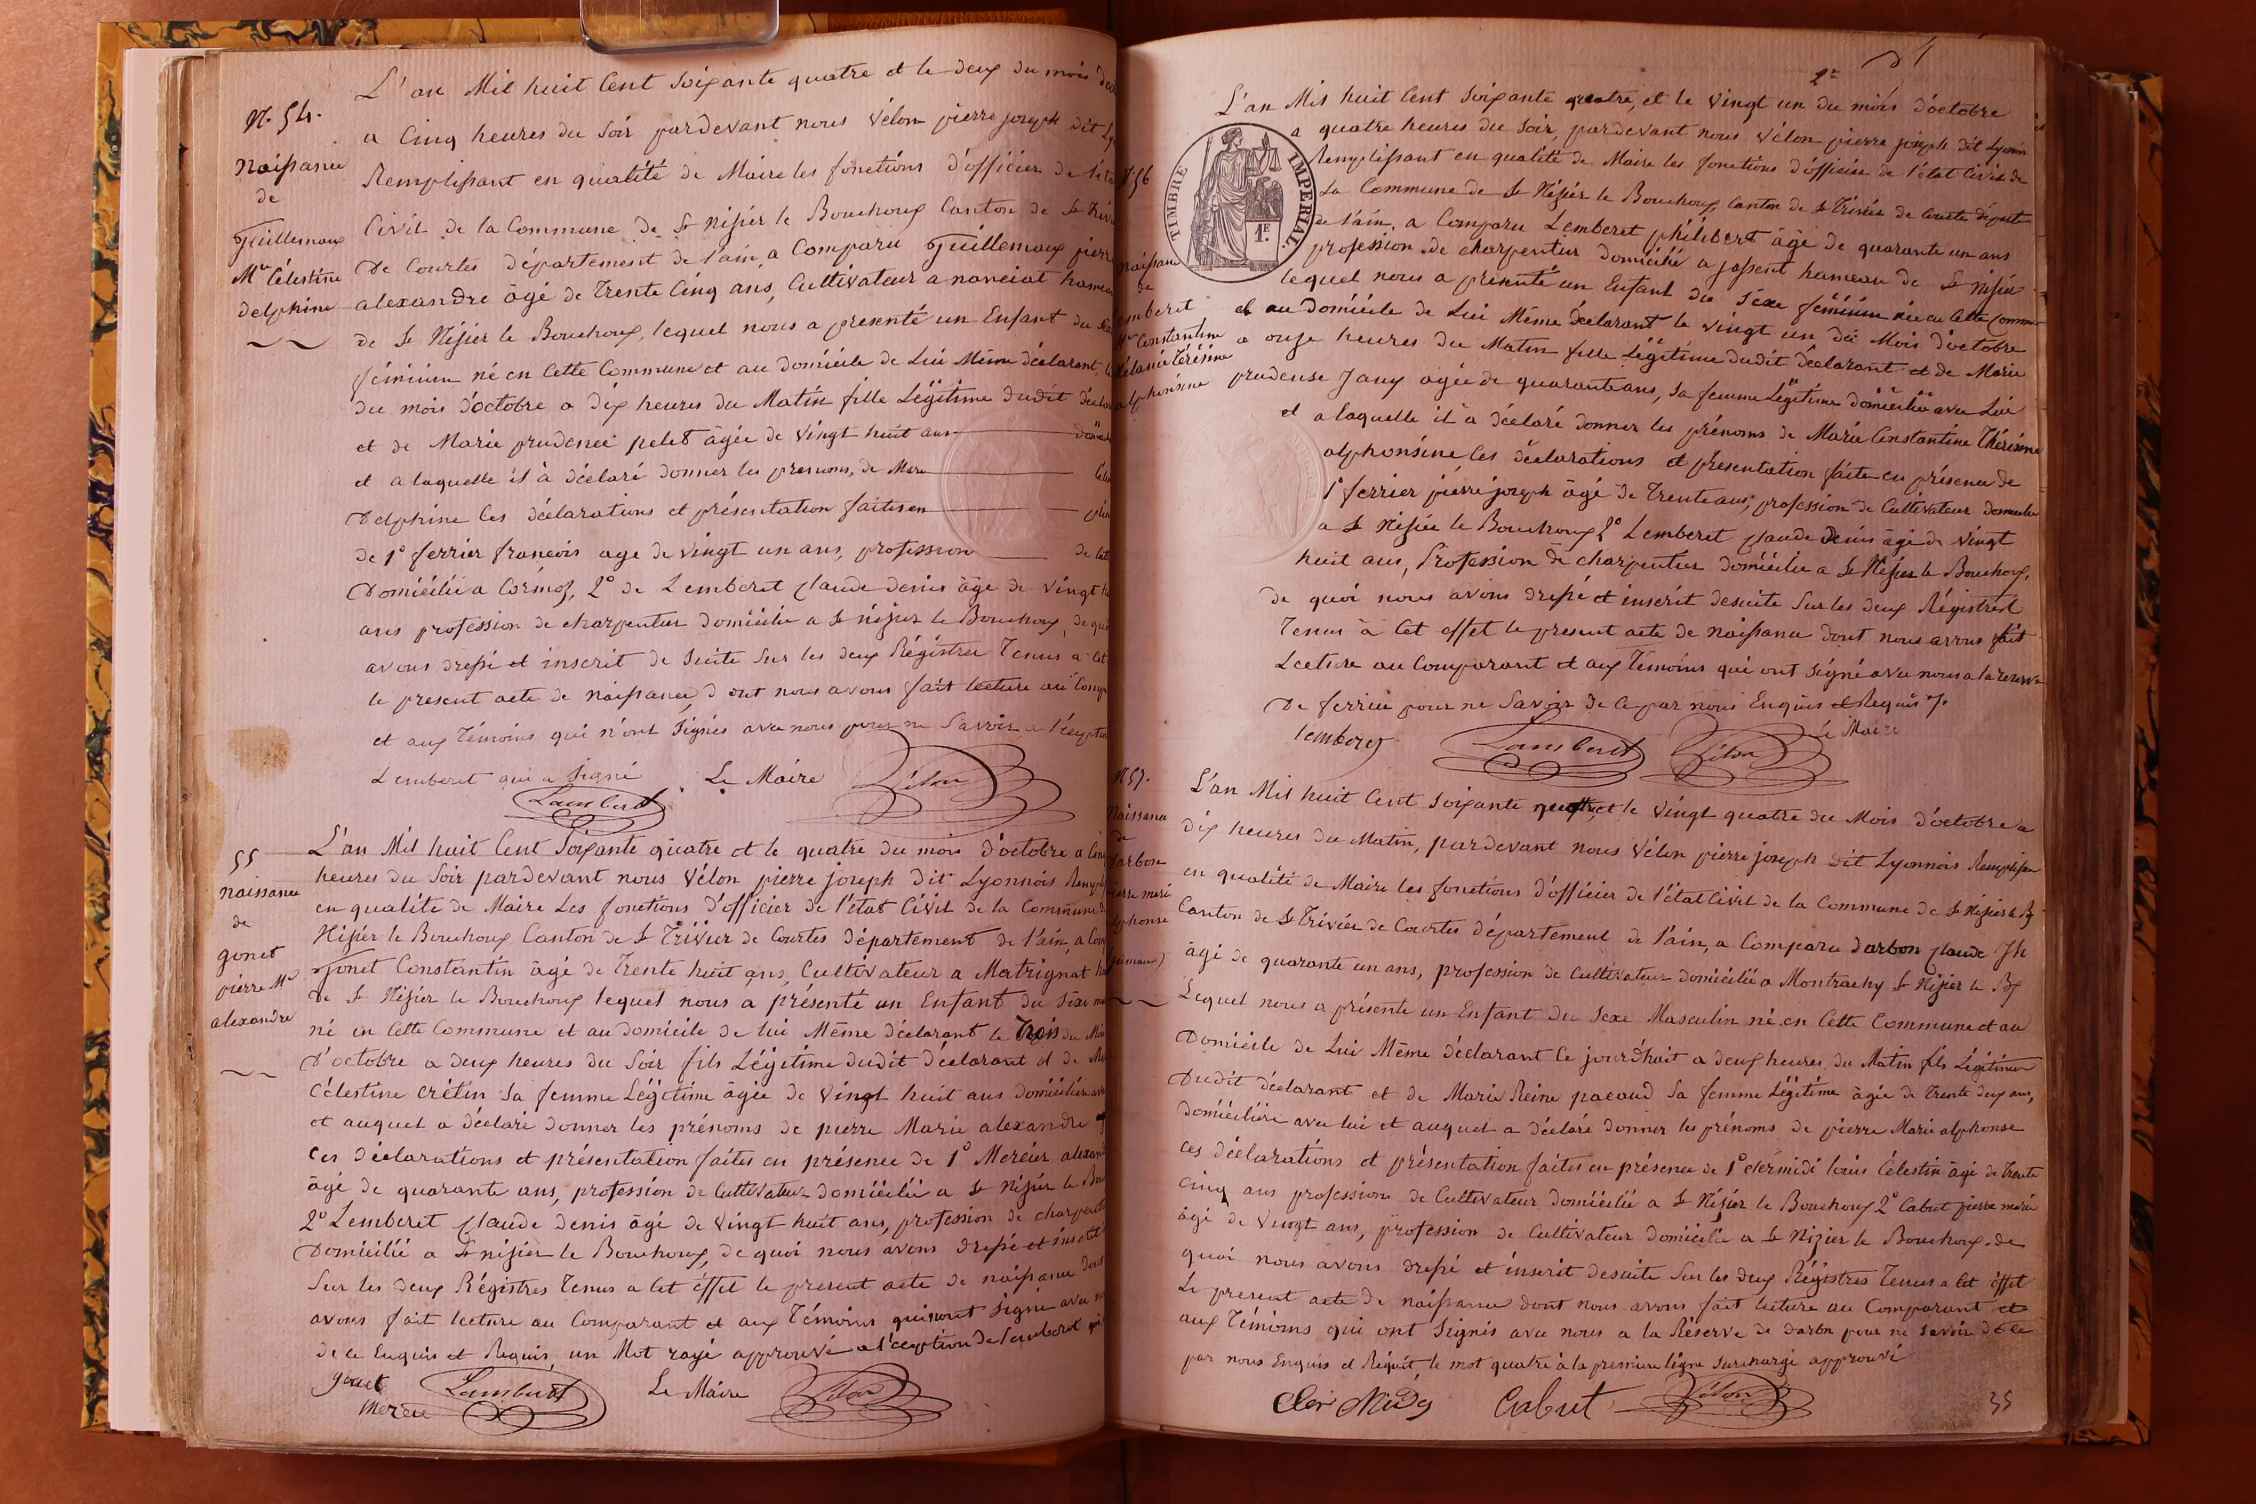 N. 54.
Naissance
de
Guillemaux
Mie Célestine
delphine
L'an Mil huit Cent Soixante quatre et le deux du mois
a Cinq heures du Soir pardevant nous Vélon pierre joseph dit
Remplissant en qualité de Maire les fonctions d'officier de l'état
Civil de la Commune de St Nisier le Bouchoux Canton de St
De Courtes département de l'ain, a Comparu Guillemaux pierre
alexandre âgé de Trente Cinq ans, Cultivateur a nanciat hameau
de St Nisier le Bouchoux, lequel nous a presenté un Enfant du
féminin né en Cette Commune et au domicile de Lui Même déclarant
du mois d'octobre a dix heures du Matin fille Légitime dudit
et de Marie prudence pelet âgée de Vingt huit ans
et a laquelle il à déclaré donner les prenoms, de Marie
Delphine Ces déclarations et présentation faites en
de 1° ferrier francois age de vingt un ans, profession
Domicilié a Cormoz, 2° de Lemberet Claude denis âgé de vingt
ans profession de charpentier domicilié a St nizier le Bouchoux, de quoi
avons dressé et inscrit de suite Sur les deux Régistres Tenus a Cet
le present acte de naissance, dont nous avons fait lecture au
et aux Témoins qui n'ont Signés avec nous pour ne Savoir a l'éxeption
Lemberet qui a Signé Le Maire Vélon
Lamberet
55
Naissance
de
gonet
pierre Mie
alexandre
L'an Mil huit Cent Soixante quatre et le quatre du mois d'octobre a Cinq
heures du Soir pardevant nous Vélon pierre joseph dit Lyonnois
en qualité de Maire Les fonctions d'officier de l'état Civil de la Commune
Nisier le Bouchoux Canton de St Trivier de Courtes département de l'ain, a
Gonet Constantin âgé de Trente huit ans, Cultivateur a Matrignat
de St Nisier le Bouchoux lequel nous a présenté un Enfant du Sexe
né en Cette Commune et au domicile de lui Même déclarant le Trois du
D'octobre a deux heures du Soir fils Légitime dudit déclarant et de
Célestine Crétin Sa femme Légitime âgée de Vingt huit ans domiciliée
et auquel a déclaré donner les prénoms de pierre Marie alexandre
Ces déclarations et présentation faites en présence de 1° Mercier
âgé de quarante ans, profession de Cultivateur domicilié a St Nisier le
2° Lemberet Claude denis âgé de Vingt huit ans, profession de
Domicilié a St nisier le Bouchoux, de quoi nous avons dressé et inscrit
Sur les deux Régistres Tenus a Cet éffet le present acte de naissance dont
avons fait lecture au Comparant et aux Témoins qui Signé avec
de ce Enquis et Requis, un Mot rayé approuvé a l'éxeption de Lemberet
gonet Lamberet Le Maire Vélon
Mercier
N. 56
Naissance
de
Lemberet
Mie Constantine
Térésine
alphonsine
L'an Mil huit Cent Soixante quatre, et le Vingt un du mois d'octobre
a quatre heures du Soir, pardevant nous Vélon pierre joseph dit Lyonnois
Remplissant en qualité de Maire les fonctions d'officier de l'état Civil de
La Commune de St Nisier le Bouchoux, Canton de St Trivier de Courtes départ
de l'ain, a Comparu Lemberet philibert âgé de quarante un ans
profession de charpentier domicilié a jassent hameau de St nisier
lequel nous a présenté un Enfant du Sexe féminin née en Cette Commune
et au Domicile de Lui Même déclarant le Vingt un du Mois d'octobre
a onze heures du Matin fille Légitime dudit déclarant et de Marie
prudense Janix agée de quarante ans, Sa femme Légitime domiciliée avec Lui
et a laquelle il à déclaré donner les prénoms de Marie Constantine Thérésine
alphonsine Ces déclarations et présentation faites en présence de
1° ferrier pierre joseph âgé de Trente ans, profession de Cultivateur domicilié
a St Nisier le Bouchoux, 2° Lemberet Claude Denis âgé de Vingt
huit ans, Profession de charpentier domicilié a St Nisier le Bouchoux,
de quoi nous avons dressé et inscrit desuite Sur les deux Régistres
Tenus à Cet effet le present acte de naissance dont nous avons fait
Lecture au Comparant et aux Témoins qui ont Signé avec nous a la réserve
De ferrier pour ne Savoir de Ce par nous Enquis et Requis
Le Maire
lemberet Lamberet Vélon
TIMBRE IMPERIAL.
1E.
N 57.
Naissance
de
Darbon
pierre marie
alphonse
L'an Mil huit Cent Soixante quatre, et le Vingt quatre du Mois d'octobre a
dix heures du Matin, pardevant nous Vélon pierre joseph dit Lyonnois Remplissant
en qualité de Maire les fonctions d'officier de l'état Civil de la Commune de St Nisier le Bx
Canton de St Trivier de Courtes département de l'ain, a Comparu Darbon Claude Jh
âgé de quarante un ans, profession de Cultivateur domicilié a Montrachy St Nizier le Bx
Lequel nous a présenté un Enfant du Sexe Masculin né en Cette Commune et au
Domicile de Lui Même déclarant Ce jourd'huit a deux heures du Matin fils Légitime
Dudit déclarant et de Marie Reine pacaud Sa femme Légitime âgée de Trente deux ans,
domiciliée avec lui et auquel a déclaré donner les prénoms de pierre Marie alphonse
ces déclarations et présentation faites en présence de 1° clermidi louis Célestin âgé de Trente
Cinq ans profession de Cultivateur domicilié a St Nizier le Bouchoux 2° Cabut pierre marie
âgé de Vingt ans, profession de Cultivateur domicilié a St Nizier le Bouchoux. de
quoi nous avons dressé et inscrit desuite Sur les deux Régistres Tenus a Cet éffet
Le present acte de naissance dont nous avons fait lecture au Comparant et
aux Témoins qui ont Signés avec nous a la Réserve de darbon pour ne Savoir de ce
par nous Enquis et Réquit, le mot quatre à la premiere ligne Surchargé approuvé
Cler Midy Cabut Vélon
55